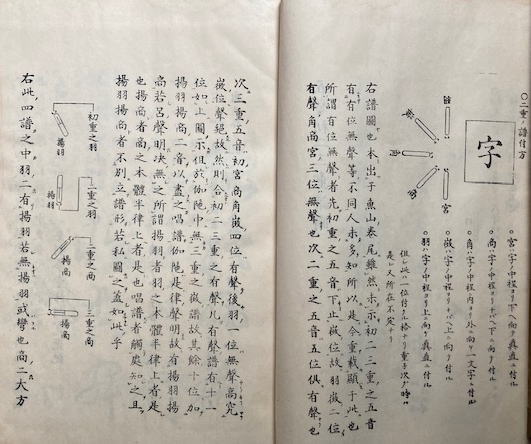 〇二重ノ譜付方
字
宮
商
角
徵
羽
○宮ハ字ノ中程ヨリ下ヘ向テ眞直ニ付ル
○商ハ字ノ中程ヨリナヽメ下ニ向テ付ル
○角ハ字ノ中程内ヨリ外ニ向テ一文字ニ付ル
○徵ハ字ノ中程ヨリナヽメ上ニ向テ付ル
○羽ハ字ノ中程ヨリ上ニ向テ眞直ニ付ル
但シ此ハ一位付ノ時
是レ又所在不定ナリ
右譜圖也本出于魚山卷尾雖然未示初二三重之五音
有有位無聲等不同人未多知所以是今重載顯于此也
所謂有位無聲者先初重之五音下止徵位故羽徵二位
有聲角商宮三位無聲也次二重之五音五位俱有聲也
次三重五音初宮商角徵四位有聲後羽一位無聲高究
徵位聲絕故然則合初二三重之有聲凡有聲譜有十一
位如上圖示但於伽陀中無三重之徵譜故其餘十位加
揚羽揚商二音以盡之唱譜伽陀是律聲明故有揚羽揚
商若呂聲明決無之所謂揚羽者羽之本體半律上者是
也揚商者商之本體半律上者是也唱譜者觸處知之且
揚羽揚商者不別立譜形若私圖之蓋如此乎
初重之羽
揚羽
二重之羽
揚羽
二重之商
揚商
三重之商
揚商
右此四譜之中羽ニ有揚羽若無揚羽或彎也商二大方